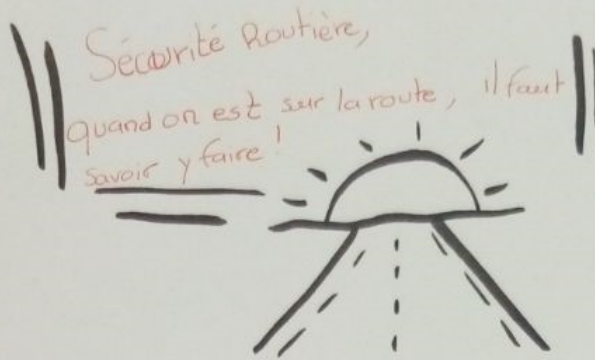 Sécurité Routière,
quand on est sur la route, il faut
savoir y faire !